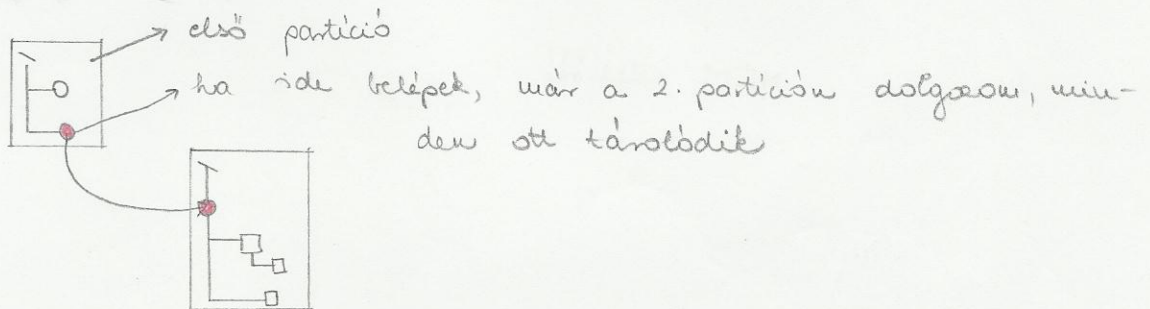 első partíció
ha ide belépek, már a 2. partíción dolgozom, min-
den ott tárolódik